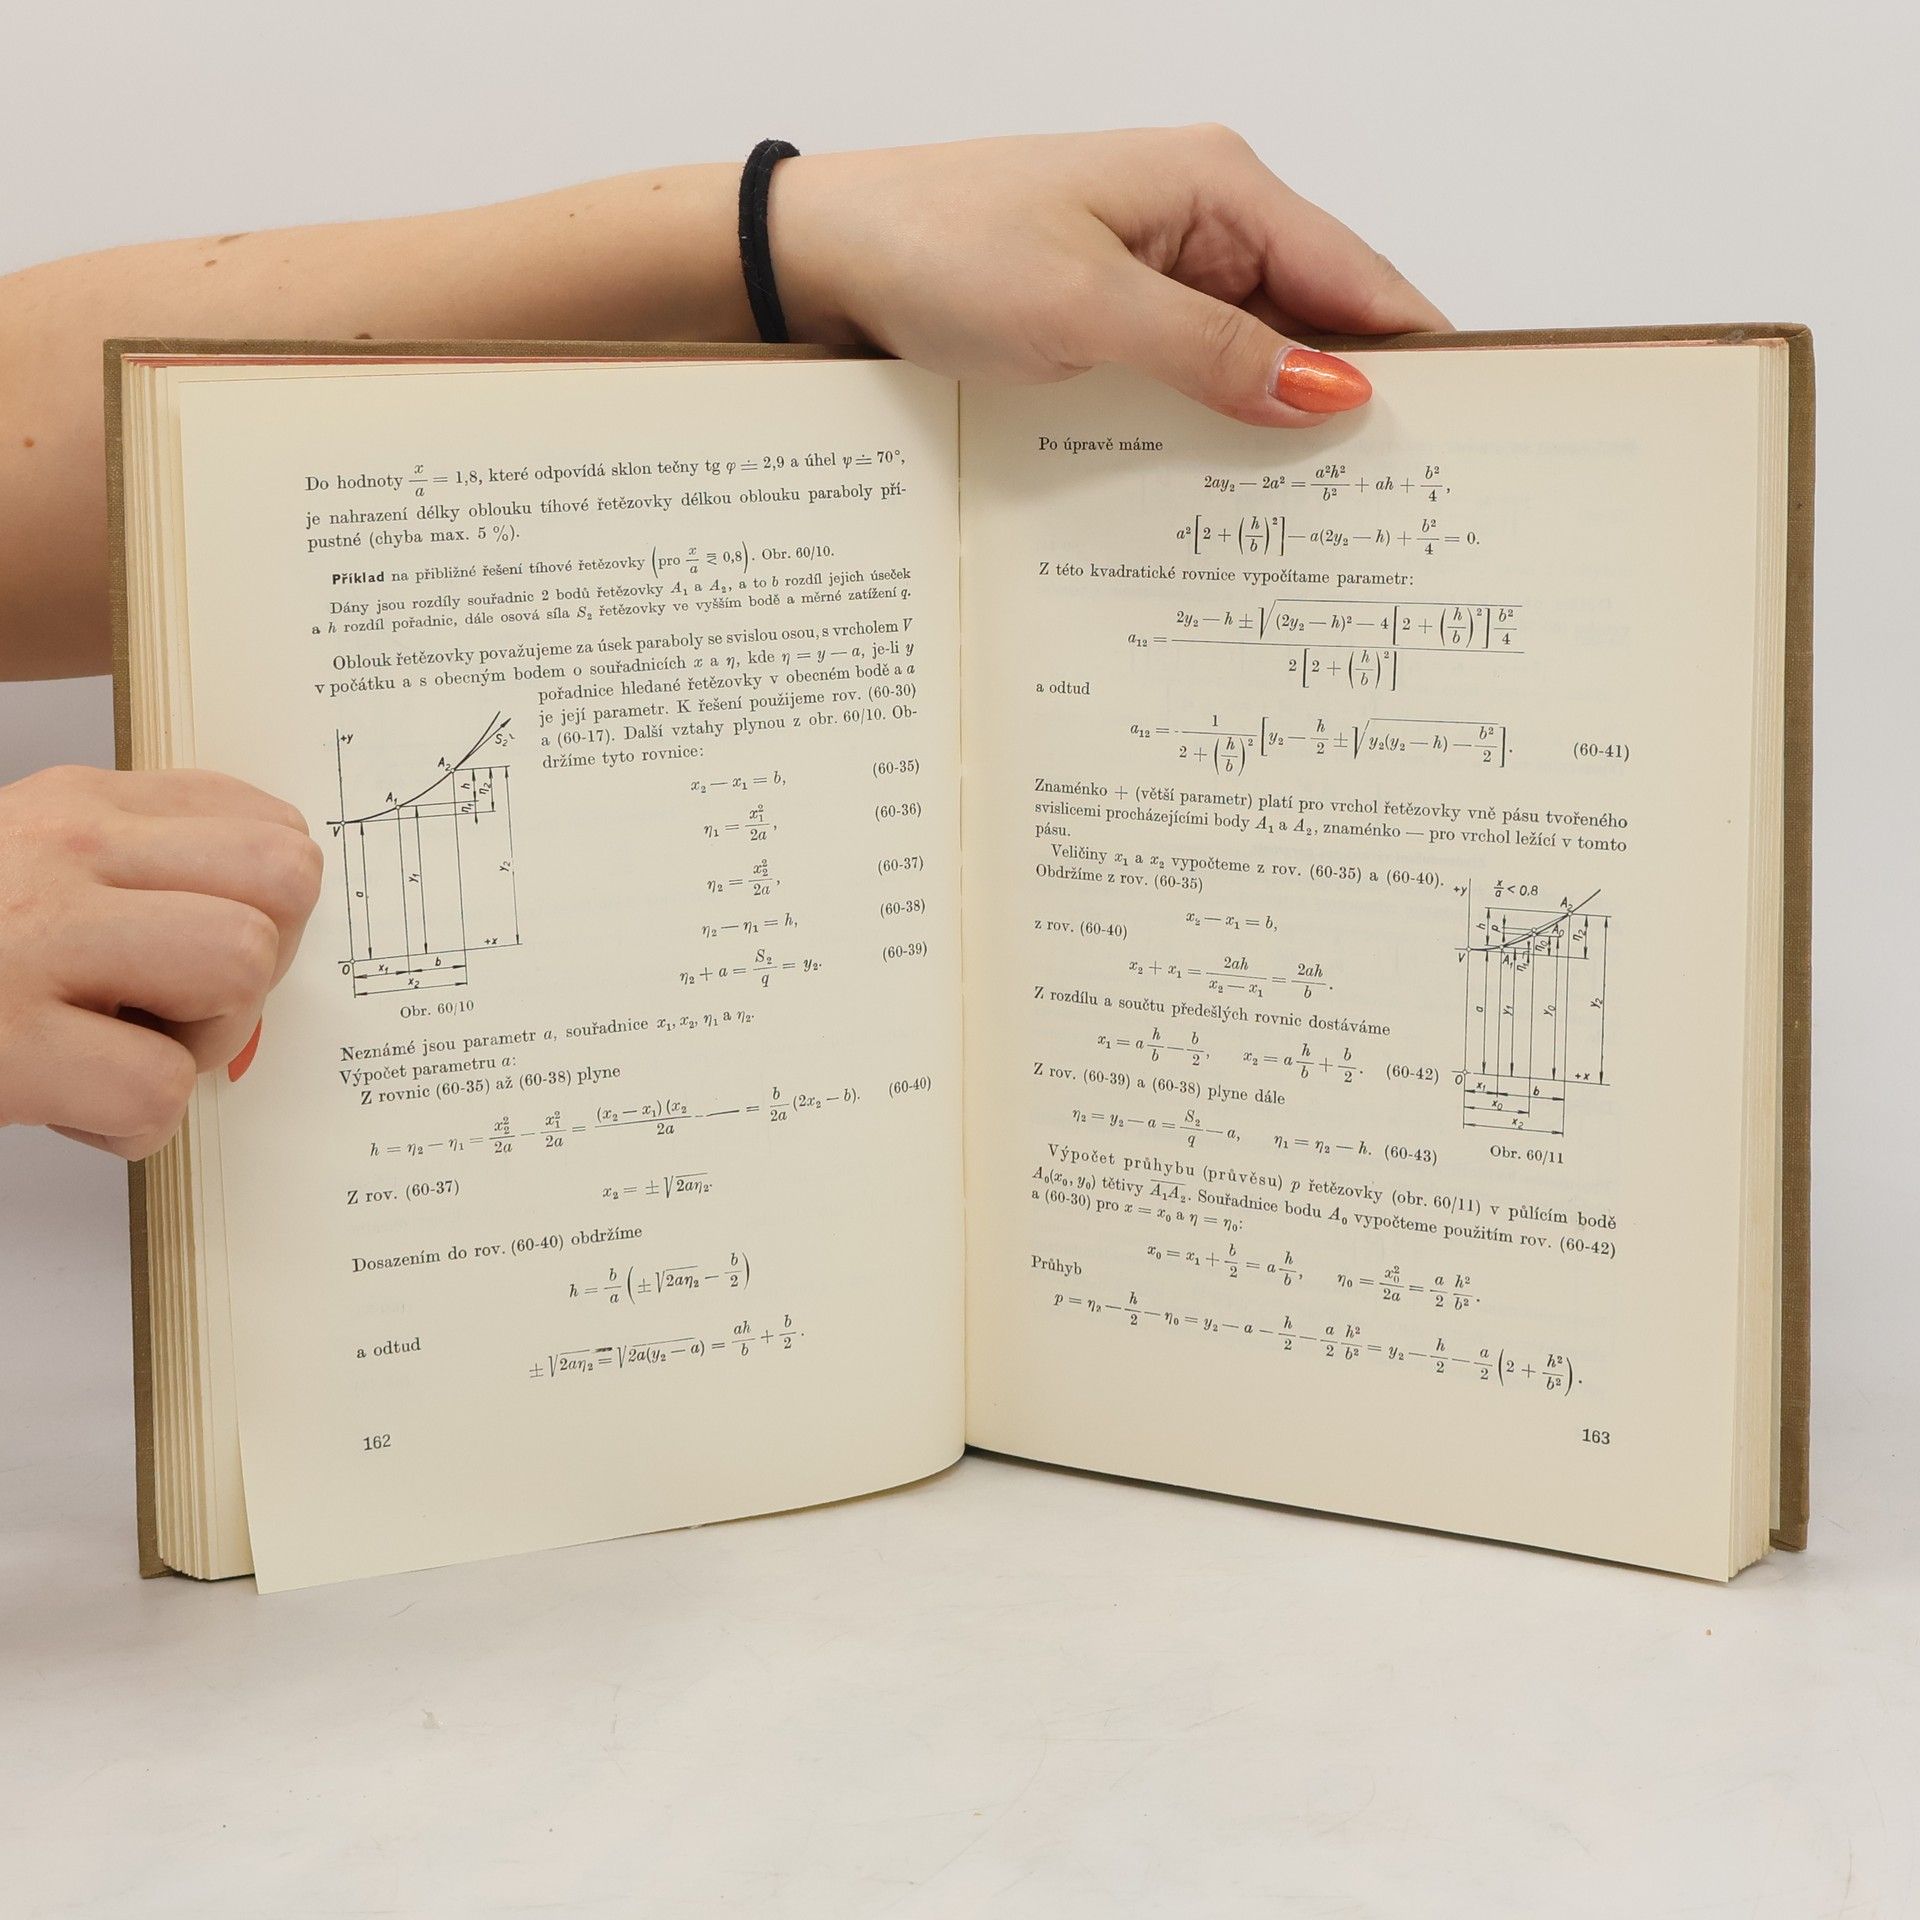 Do hodnoty x/a = 1,8, které odpovídá sklon tečny tg φ ≐ 2,9 a úhel φ ≐ 70°,
je nahrazení délky oblouku tíhové řetězovky délkou oblouku paraboly pří-
pustné (chyba max. 5 %).
Příklad na přibližné řešení tíhové řetězovky (pro x/a ⋜ 0,8). Obr. 60/10.
Dány jsou rozdíly souřadnic 2 bodů řetězovky A₁ a A₂, a to b rozdíl jejich úseček
a h rozdíl pořadnic, dále osová síla S₂ řetězovky ve vyšším bodě a měrné zatížení q.
Oblouk řetězovky považujeme za úsek paraboly se svislou osou, s vrcholem V
v počátku a s obecným bodem o souřadnicích x a η, kde η = y — a, je-li y
pořadnice hledané řetězovky v obecném bodě a a
je její parametr. K řešení použijeme rov. (60-30)
a (60-17). Další vztahy plynou z obr. 60/10. Ob-
držíme tyto rovnice:
x₂ — x₁ = b, (60-35)
η₁ = x₁²/2a, (60-36)
η₂ = x₂²/2a, (60-37)
η₂ — η₁ = h, (60-38)
η₂ + a = S₂/q = y₂. (60-39)
+y
S₂
A₂
A₁
h
η₁
η₂
V
a
y₁
y₂
+x
O
x₁
b
x₂
Obr. 60/10
Neznámé jsou parametr a, souřadnice x₁, x₂, η₁ a η₂.
Výpočet parametru a:
Z rovnic (60-35) až (60-38) plyne
h = η₂ — η₁ = x₂²/2a — x₁²/2a = (x₂ — x₁) (x₂ /2a = b/2a (2x₂ — b). (60-40)
Z rov. (60-37)
x₂ = ± √2aη₂.
Dosazením do rov. (60-40) obdržíme
h = b/a (± √2aη₂ — b/2)
a odtud
± √2aη₂ = √2a(y₂ — a) = ah/b + b/2.
162
Po úpravě máme
2ay₂ — 2a² = a²h²/b² + ah + b²/4,
a² [2 + (h/b)²] — a(2y₂ — h) + b²/4 = 0.
Z této kvadratické rovnice vypočítame parametr:
a₁₂ = (2y₂ — h ± √((2y₂ — h)² — 4 [2 + (h/b)²] b²/4)) / (2 [2 + (h/b)²])
a odtud
a₁₂ = 1/(2 + (h/b)²) [y₂ — h/2 ± √(y₂(y₂ — h) — b²/2)]. (60-41)
Znaménko + (větší parametr) platí pro vrchol řetězovky vně pásu tvořeného
svislicemi procházejícími body A₁ a A₂, znaménko — pro vrchol ležící v tomto
pásu.
Veličiny x₁ a x₂ vypočteme z rov. (60-35) a (60-40).
Obdržíme z rov. (60-35)
x₂ — x₁ = b,
z rov. (60-40)
x₂ + x₁ = 2ah/(x₂ — x₁) = 2ah/b.
Z rozdílu a součtu předešlých rovnic dostáváme
x₁ = a h/b — b/2, x₂ = a h/b + b/2. (60-42)
Z rov. (60-39) a (60-38) plyne dále
η₂ = y₂ — a = S₂/q — a, η₁ = η₂ — h. (60-43)
+y
x/a < 0,8
A₂
h
p
A₀
η₂
η₀
V
A₁
η₁
a
y₁
y₀
y₂
O
+x
x₁
b
x₀
x₂
Obr. 60/11
Výpočet průhybu (průvěsu) p řetězovky (obr. 60/11) v půlícím bodě
A₀(x₀, y₀) tětivy A₁A₂. Souřadnice bodu A₀ vypočteme použitím rov. (60-42)
a (60-30) pro x = x₀ a η = η₀:
x₀ = x₁ + b/2 = a h/b, η₀ = x₀²/2a = a/2 h²/b².
Průhyb
p = η₂ — h/2 — η₀ = y₂ — a — h/2 — a/2 h²/b² = y₂ — h/2 — a/2 (2 + h²/b²).
163